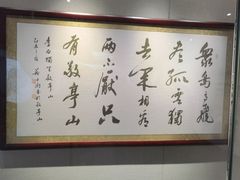 眾鳥高飛
盡孤雲獨
去閑相看
兩不厭只
有敬亭山
李白獨坐敬亭山